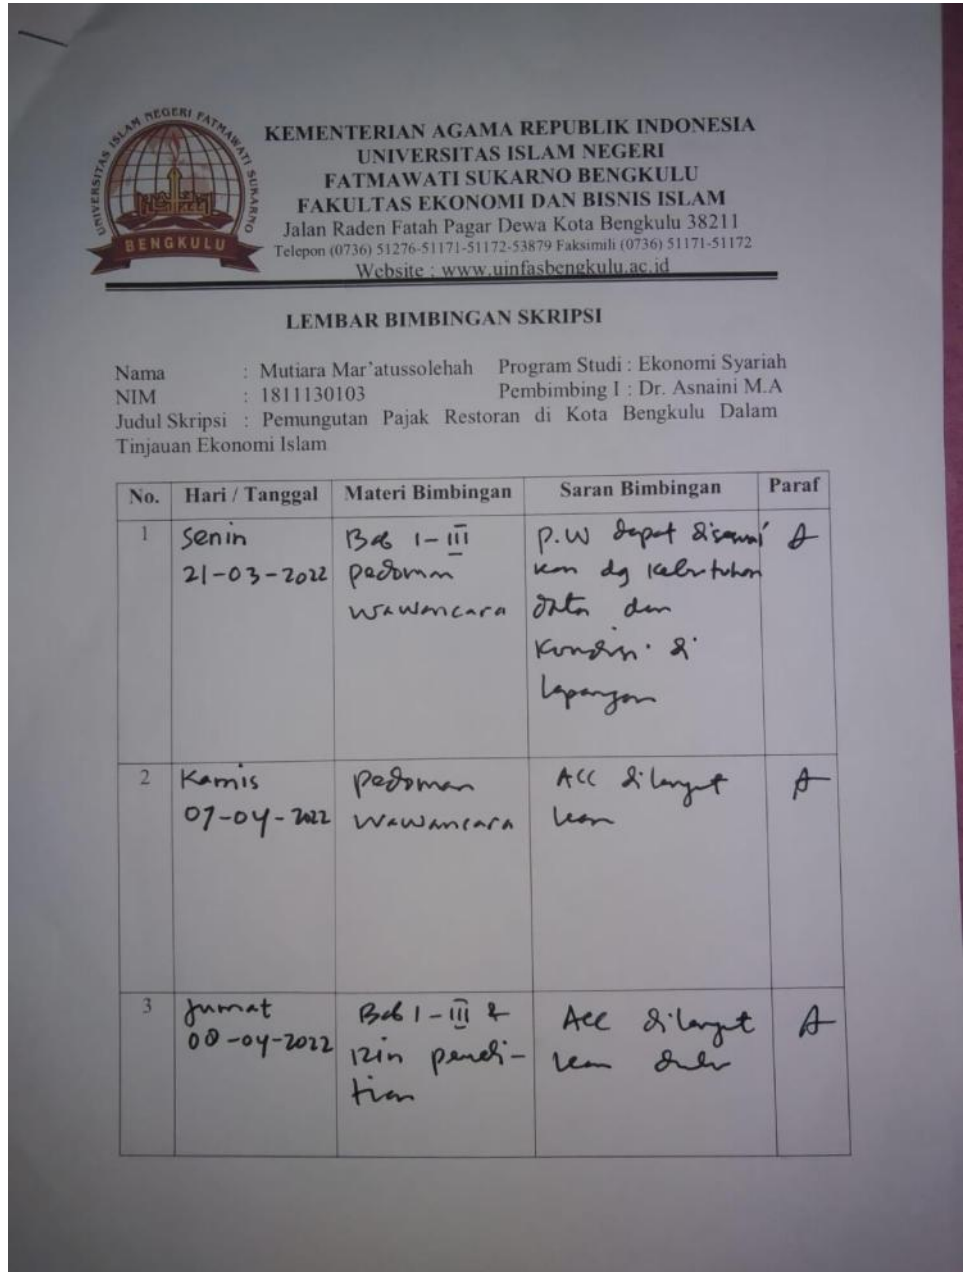 UNIVERSITAS ISLAM NEGERI FATMAWATI SUKARNO
BENGKULU
KEMENTERIAN AGAMA REPUBLIK INDONESIA
UNIVERSITAS ISLAM NEGERI
FATMAWATI SUKARNO BENGKULU
FAKULTAS EKONOMI DAN BISNIS ISLAM
Jalan Raden Fatah Pagar Dewa Kota Bengkulu 38211
Telepon (0736) 51276-51171-51172-53879 Faksimili (0736) 51171-51172
Website : www.uinfasbengkulu.ac.id
LEMBAR BIMBINGAN SKRIPSI
Nama : Mutiara Mar'atussolehah Program Studi : Ekonomi Syariah
NIM : 1811130103 Pembimbing I : Dr. Asnaini M.A
Judul Skripsi : Pemungutan Pajak Restoran di Kota Bengkulu Dalam
Tinjauan Ekonomi Islam
No. Hari / Tanggal Materi Bimbingan Saran Bimbingan Paraf
1 Senin Bab I-III P.W dapat disesuai
21-03-2022 pedoman kan dg kebutuhan
wawancara data dan
kondisi di
lapangan
2 Kamis pedoman ACC dilanjut
07-04-2022 wawancara kan
3 Jumat Bab I-III & Acc dilanjut
08-04-2022 izin peneli- kan dulu
tian